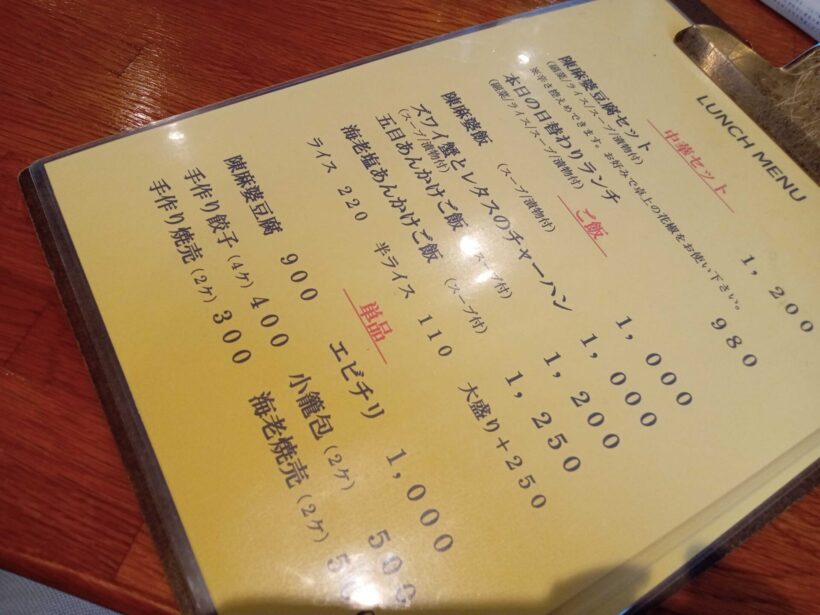 LUNCH MENU
中華セット
陳麻婆豆腐セット 1,200
(副菜/ライス/スープ/漬物付)
※辛さ控えめできます。お好みで卓上の花椒をお使い下さい。
本日の日替わりランチ 980
(副菜/ライス/スープ/漬物付)
ご飯
陳麻婆飯 (スープ/漬物付) 1,000
ズワイ蟹とレタスのチャーハン 1,000
(スープ/漬物付)
五目あんかけご飯 (スープ付) 1,200
海老塩あんかけご飯 (スープ付) 1,250
ライス 220 半ライス 110 大盛り+250
単品
陳麻婆豆腐 900 エビチリ 1,000
手作り餃子(4ケ) 400 小籠包(2ケ) 500
手作り焼売(2ケ) 300 海老焼売(2ケ)